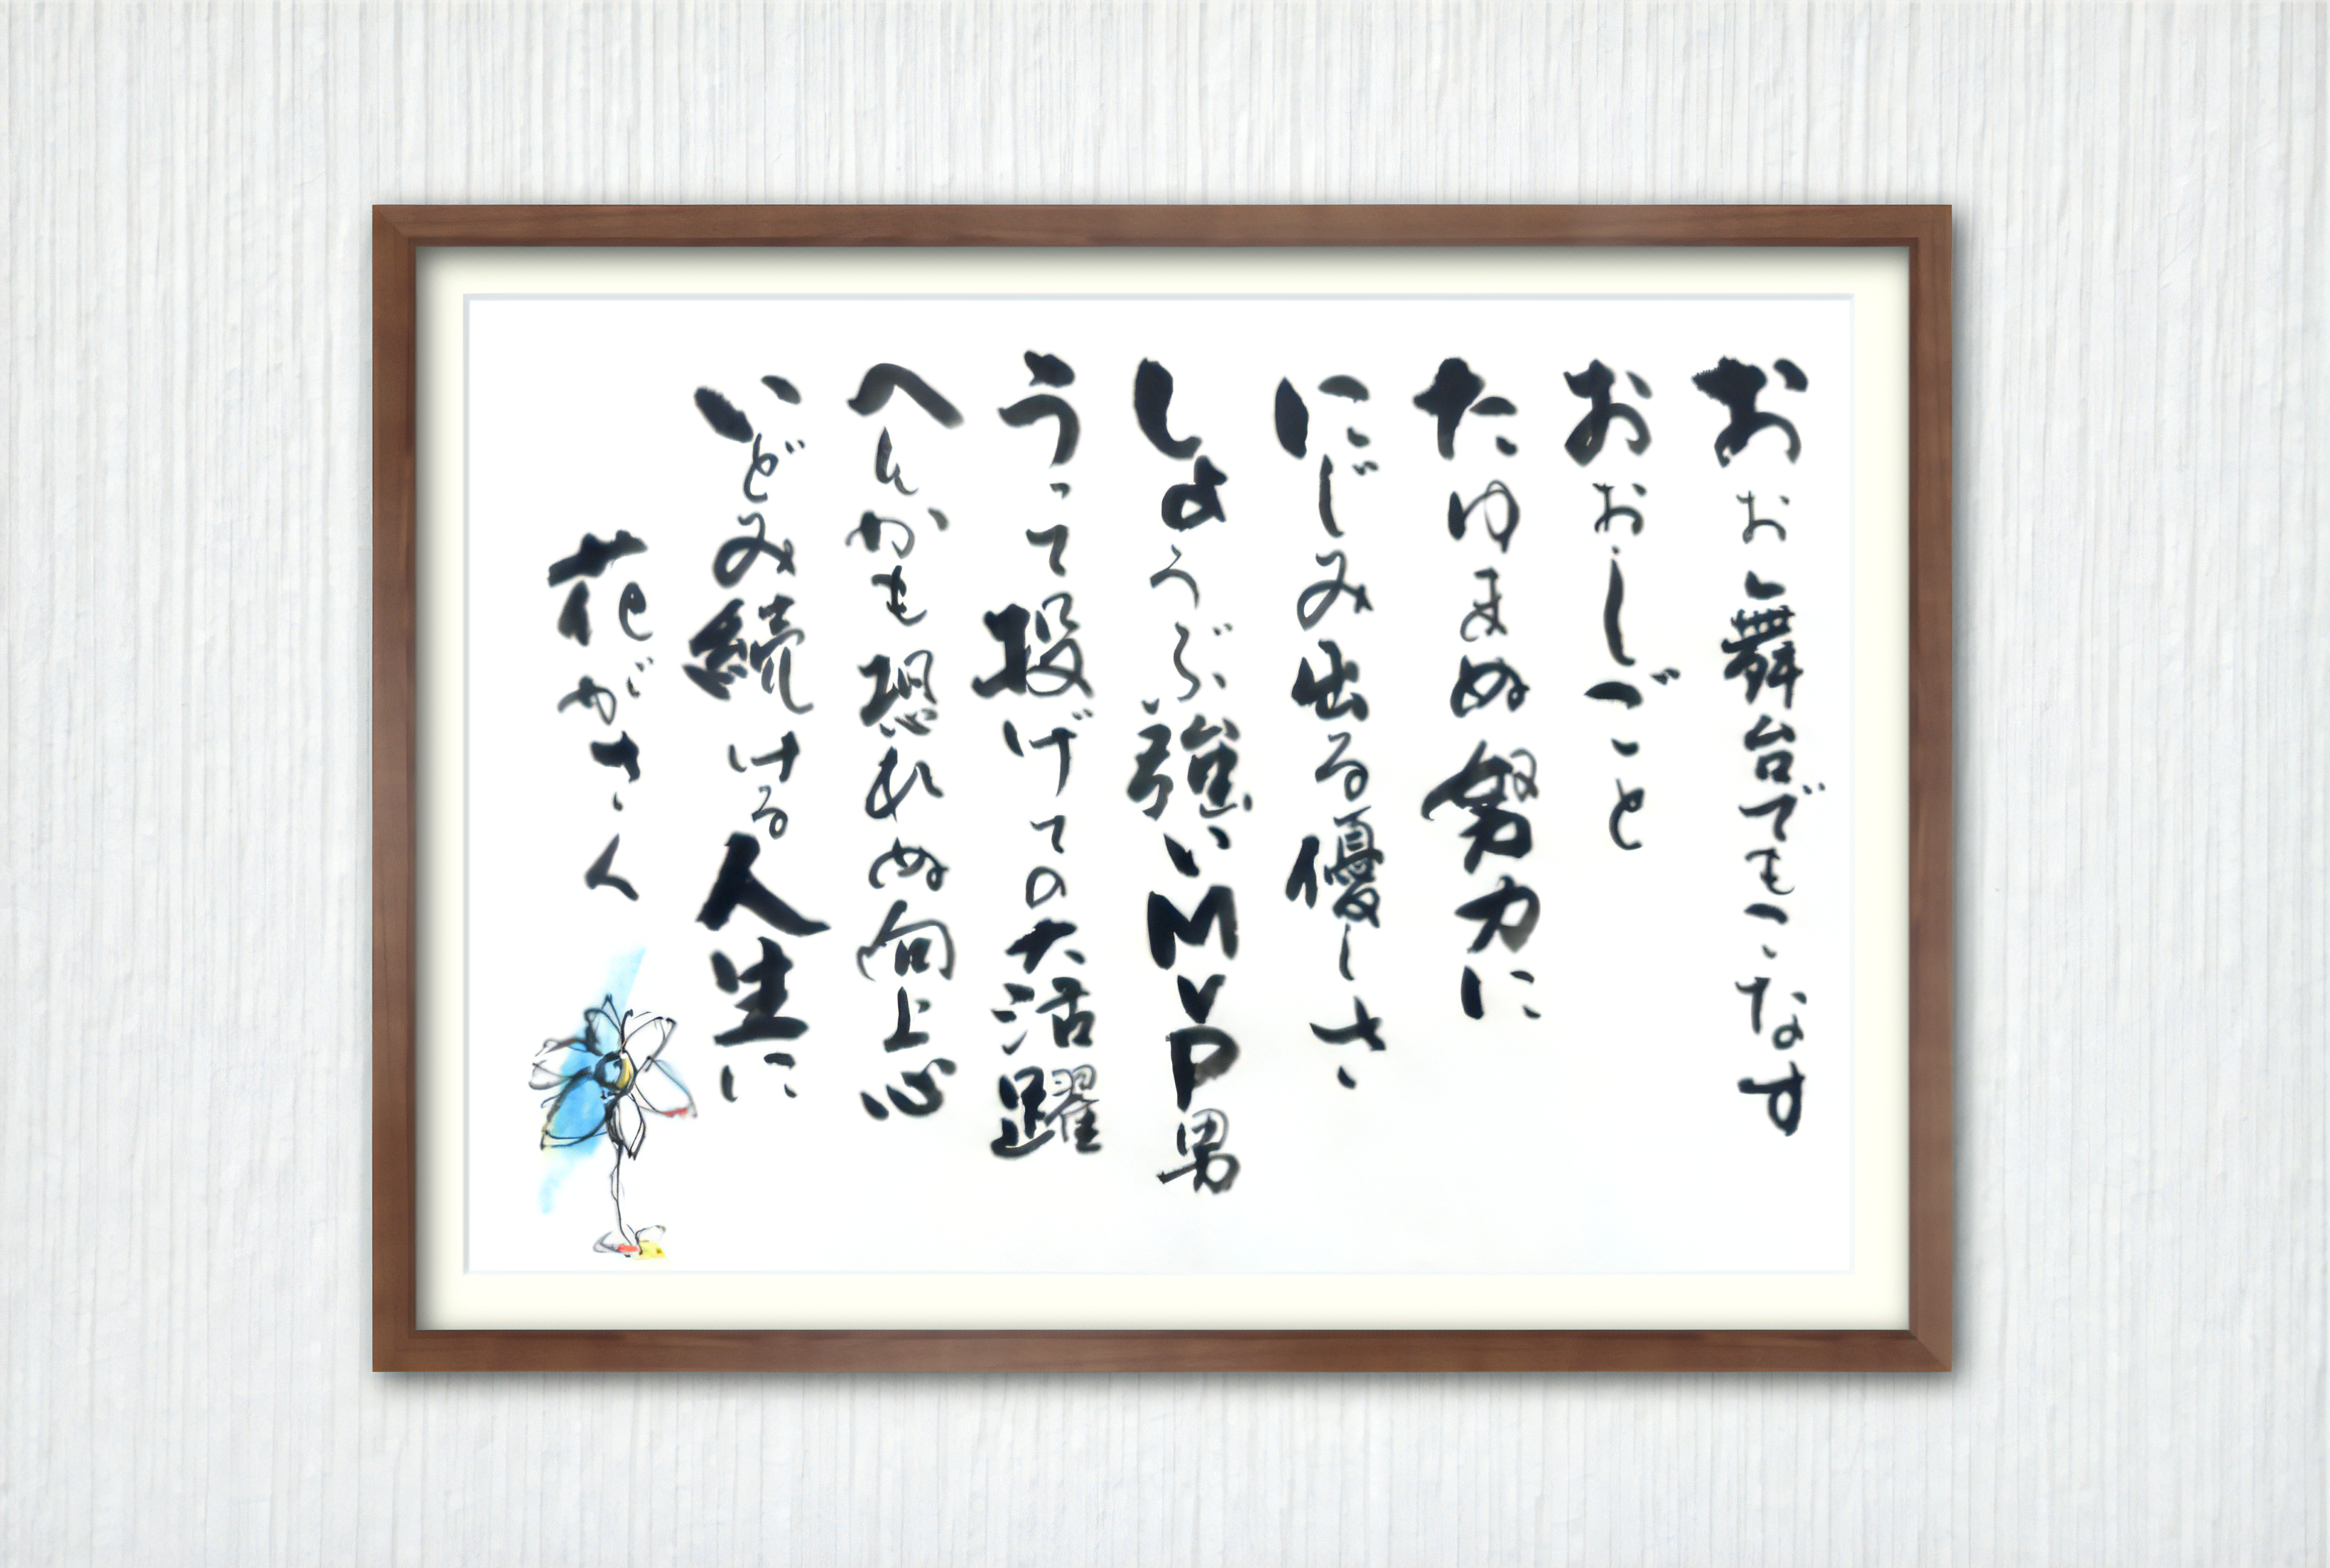 おお舞台でもこなす
おおしごと
たゆまぬ努力に
にじみ出る優しさ
しょうぶ強いMVP男
うって投げての大活躍
へんかも恐れぬ向上心
いどみ続ける人生に
花がさく